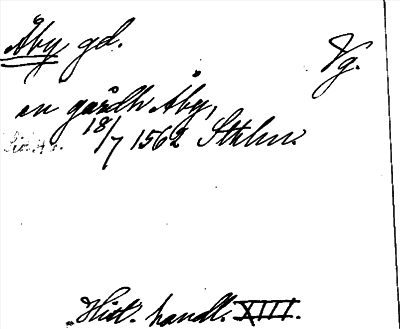 Åby gd. Vg.
en gaardh Åby,
18/7 1562 Sthlm.
Hist. handl. XIII.